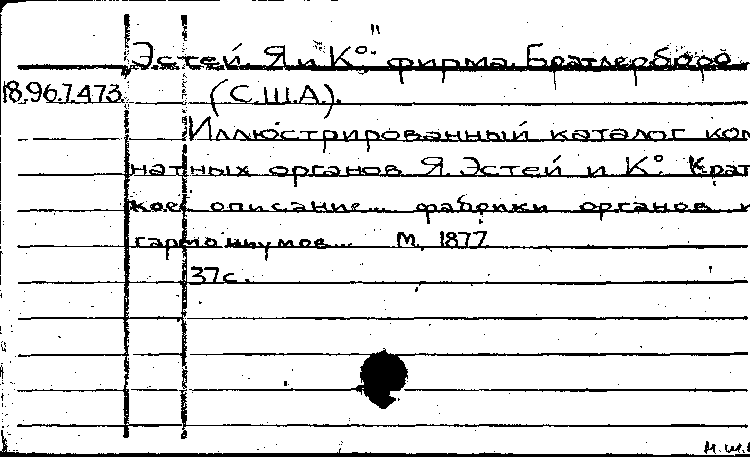 Эстей. Я и К°." фирма. Братлерборо.
18.96.7.473. (С.Ш.А).
Иллюстрированный каталог ком
натных органов Я. Эстей и К°. Крат
кое описание... фабрики органов и
гармониумов... М, 1877
37с.